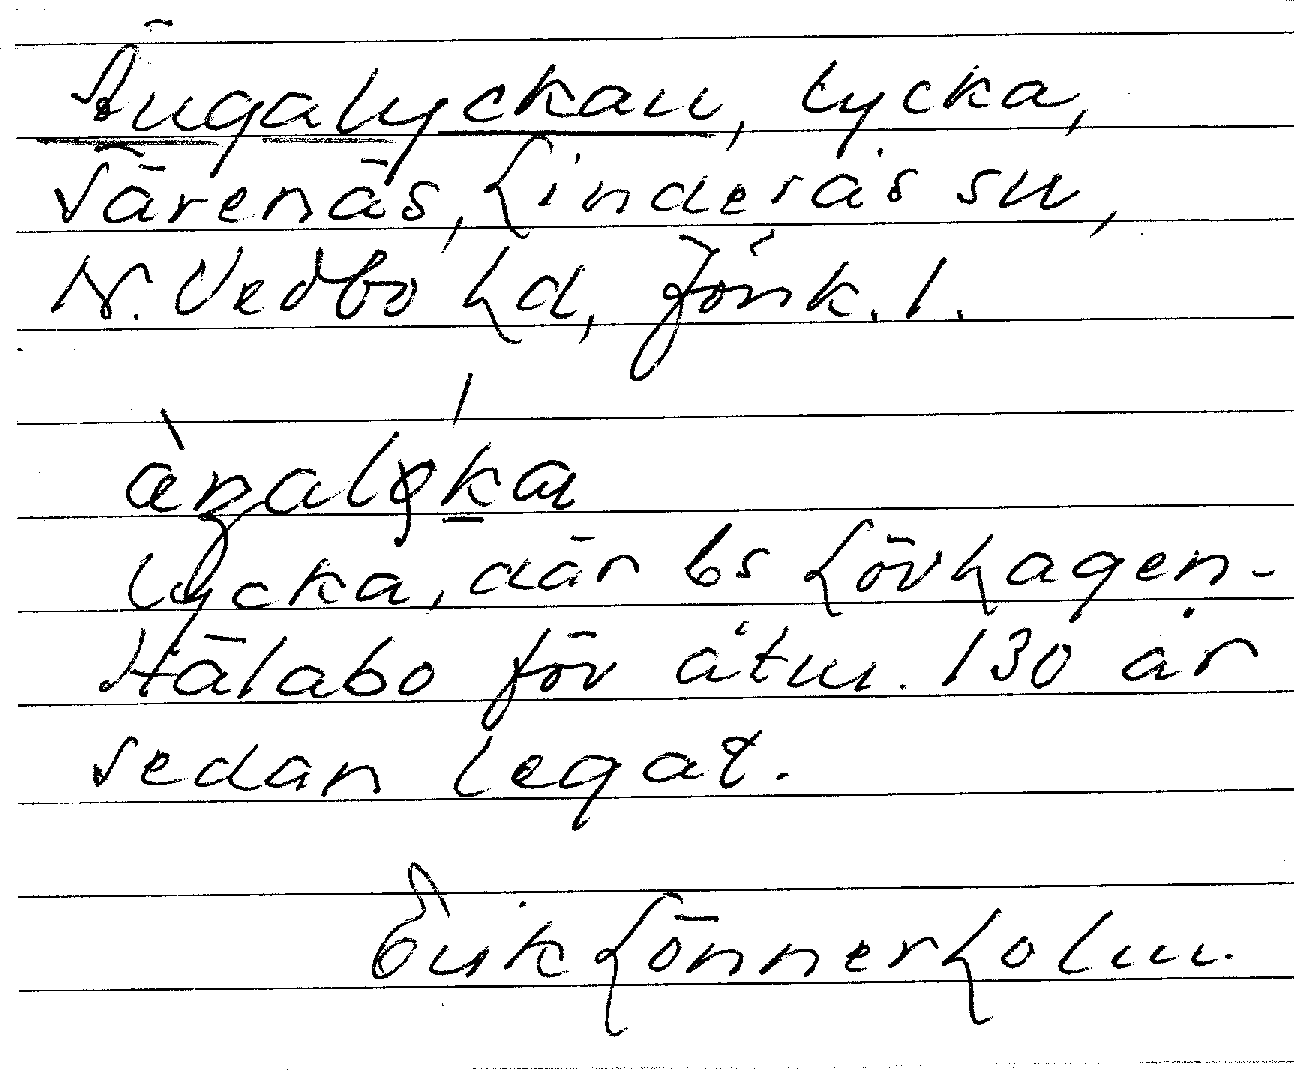 Ängalyckan, lycka,
Värenäs, Linderås sn,
N. Vedbo hd, Jönk. l.
lycka, där bs Lövhagen-
Hälabo för åtm. 130 år
sedan legat.
Erik Lönnerholm.